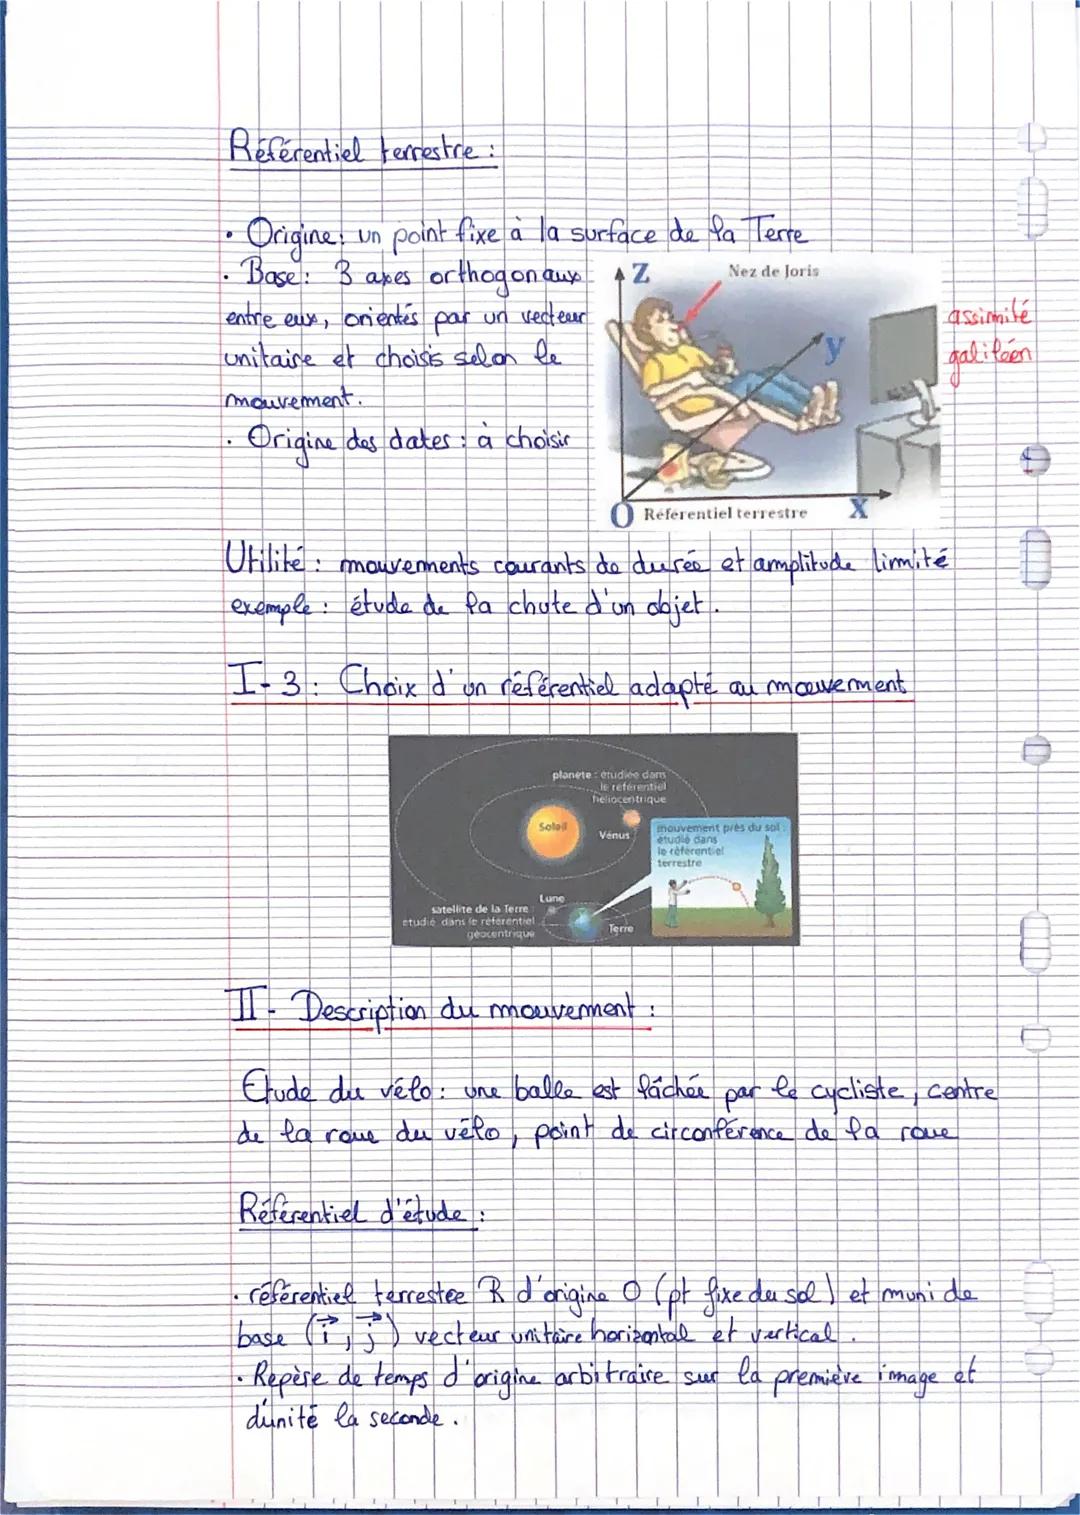 Référentiel terrestre :
• Origine : un point fixe à la surface de la Terre
• Base : 3 axes orthogonaux
entre eux, orientés par un vecteur
unitaire et choisis selon le
mouvement.
• Origine des dates : à choisir
Z
Nez de Joris
y
O Référentiel terrestre X
assimilé
galiléen
Utilité : mouvements courants de durée et amplitude limité
exemple : étude de la chute d'un objet.
I-3 : Choix d'un référentiel adapté au mouvement
planète : étudiée dans
le référentiel
héliocentrique
Soleil
Vénus
mouvement près du sol :
étudié dans
le référentiel
terrestre
Lune
satellite de la Terre :
étudié dans le référentiel
géocentrique
Terre
II- Description du mouvement :
Etude du vélo : une balle est lâchée par le cycliste, centre
de la roue du vélo, point de circonférence de la roue
Référentiel d'étude :
• référentiel terrestre R d'origine O (pt fixe du sol) et muni de
base (i⃗, j⃗) vecteur unitaire horizontal et vertical.
• Repère de temps d'origine arbitraire sur la première image et
d'unité la seconde.